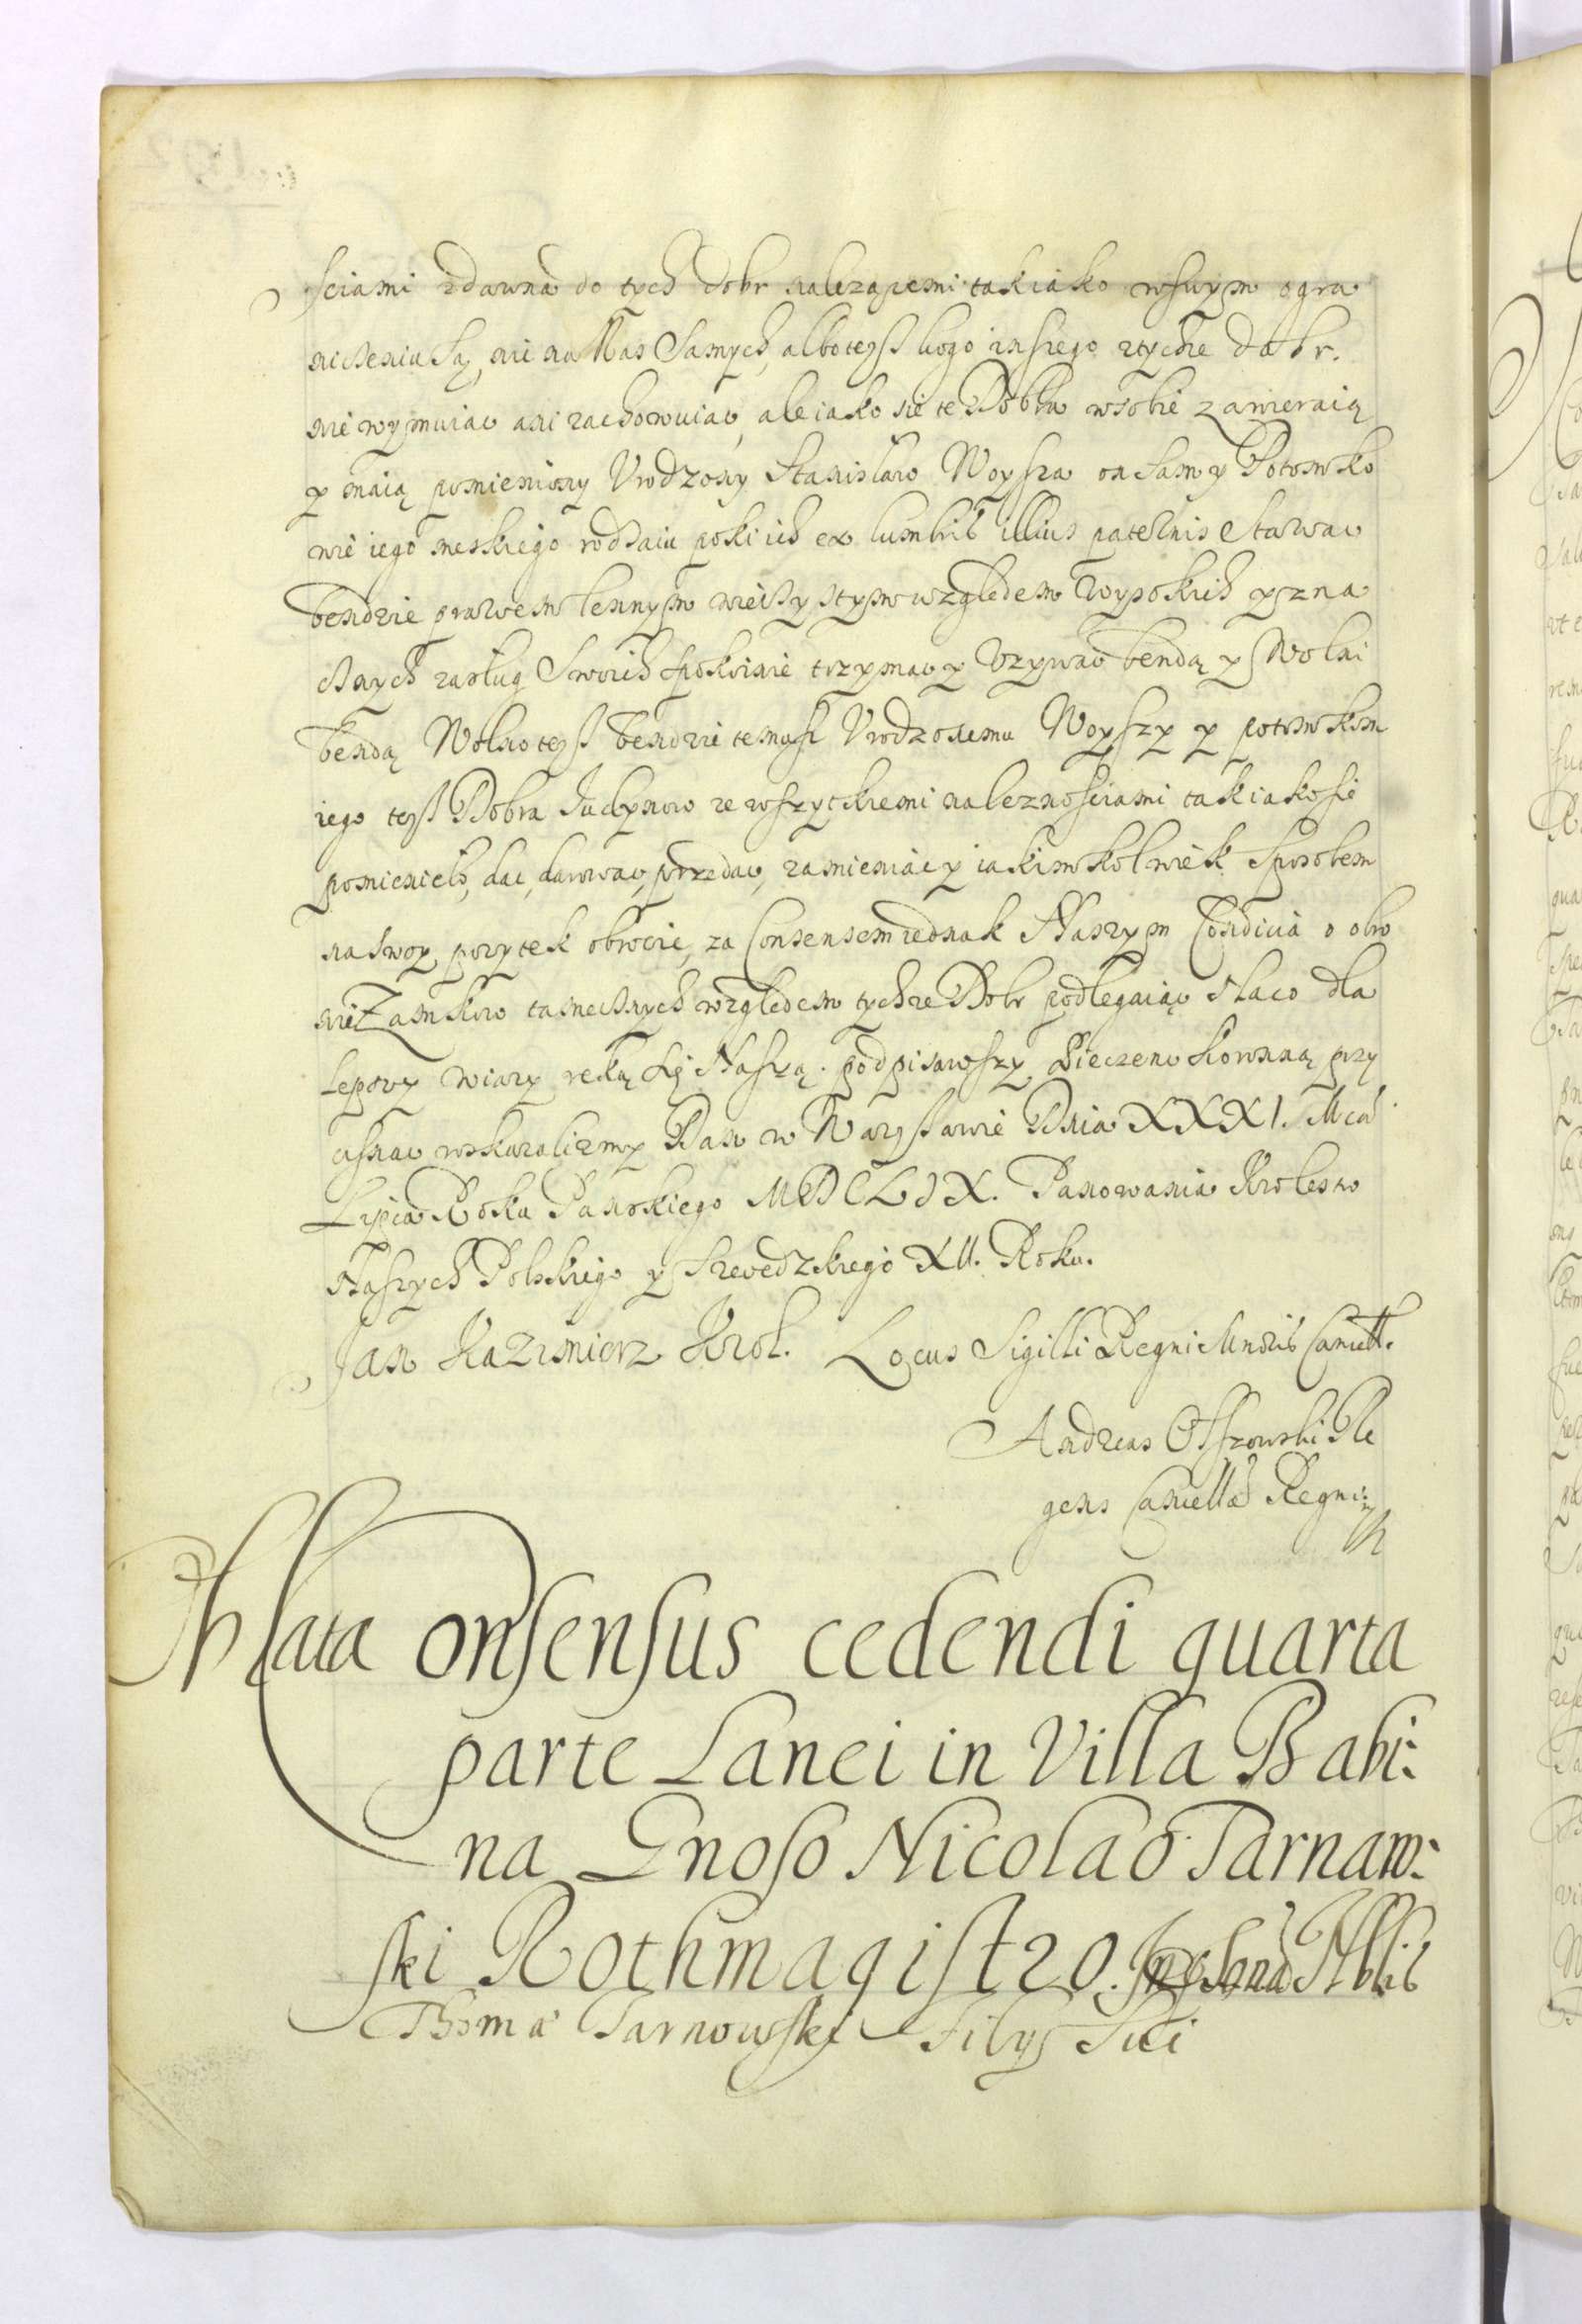 sciami zdawna do tych dobr nalezącemi tak iako wswym ogra
niczeniu są, nic na Nas Samych, albo tesz kogo inszego ztychze dobr.
nie wyimuiąc ani zachowuiąc, ale iako sie te Dobra wsobie zawieraią
y maią pomieniony Vrodzony Stanisław Woysza on sam y Potomko
wie iego meskiego rodzaiu poki ich ex lumbis illius paternis stawac
bendzie prawem lennym wieczystym względem wysokich y zna
cznych zasług Swoich spokoinie trzymac y Vzywac bendą y Wolni
bendą Wolno tesz bendzie temusz Vrodzonemu Woyszy y potomkom
iego tesz Dobra ze wszytkiemi naleznosciami tak iako sie
pomienieło, dac, darowac, przedac, zamieniac y iakimkolwiek sposobem
na swoy pozytek obrocic, za Consensem iednak Naszym Condicia o obro
nie Zamkow tamecznych względem tychze Dobr podlegaiąc Na co dla
lepszy wiary ręką się Naszą podpisawszy Pieczenc Koronną przy
cisnac roskazalizmy Dan w Warszawie Dnia XXXI. Mca
Lipca Roku Panskiego MDCLIX. Panowania Krolestw
Naszych Polskiego y Szwedzkiego XII. Roku.
Jan Kazimierz Krol. Locus Sigilli Regni Minoris Cancell.
Andreas Olszowski Re
gens Cancellae Regni
Consensus cedendi quarta
parte Lanei in Villa Babi:
na Gnoso Nicolao Tarnaw:
ski Rothmagistro.
Thoma Tarnowski Filys Sui